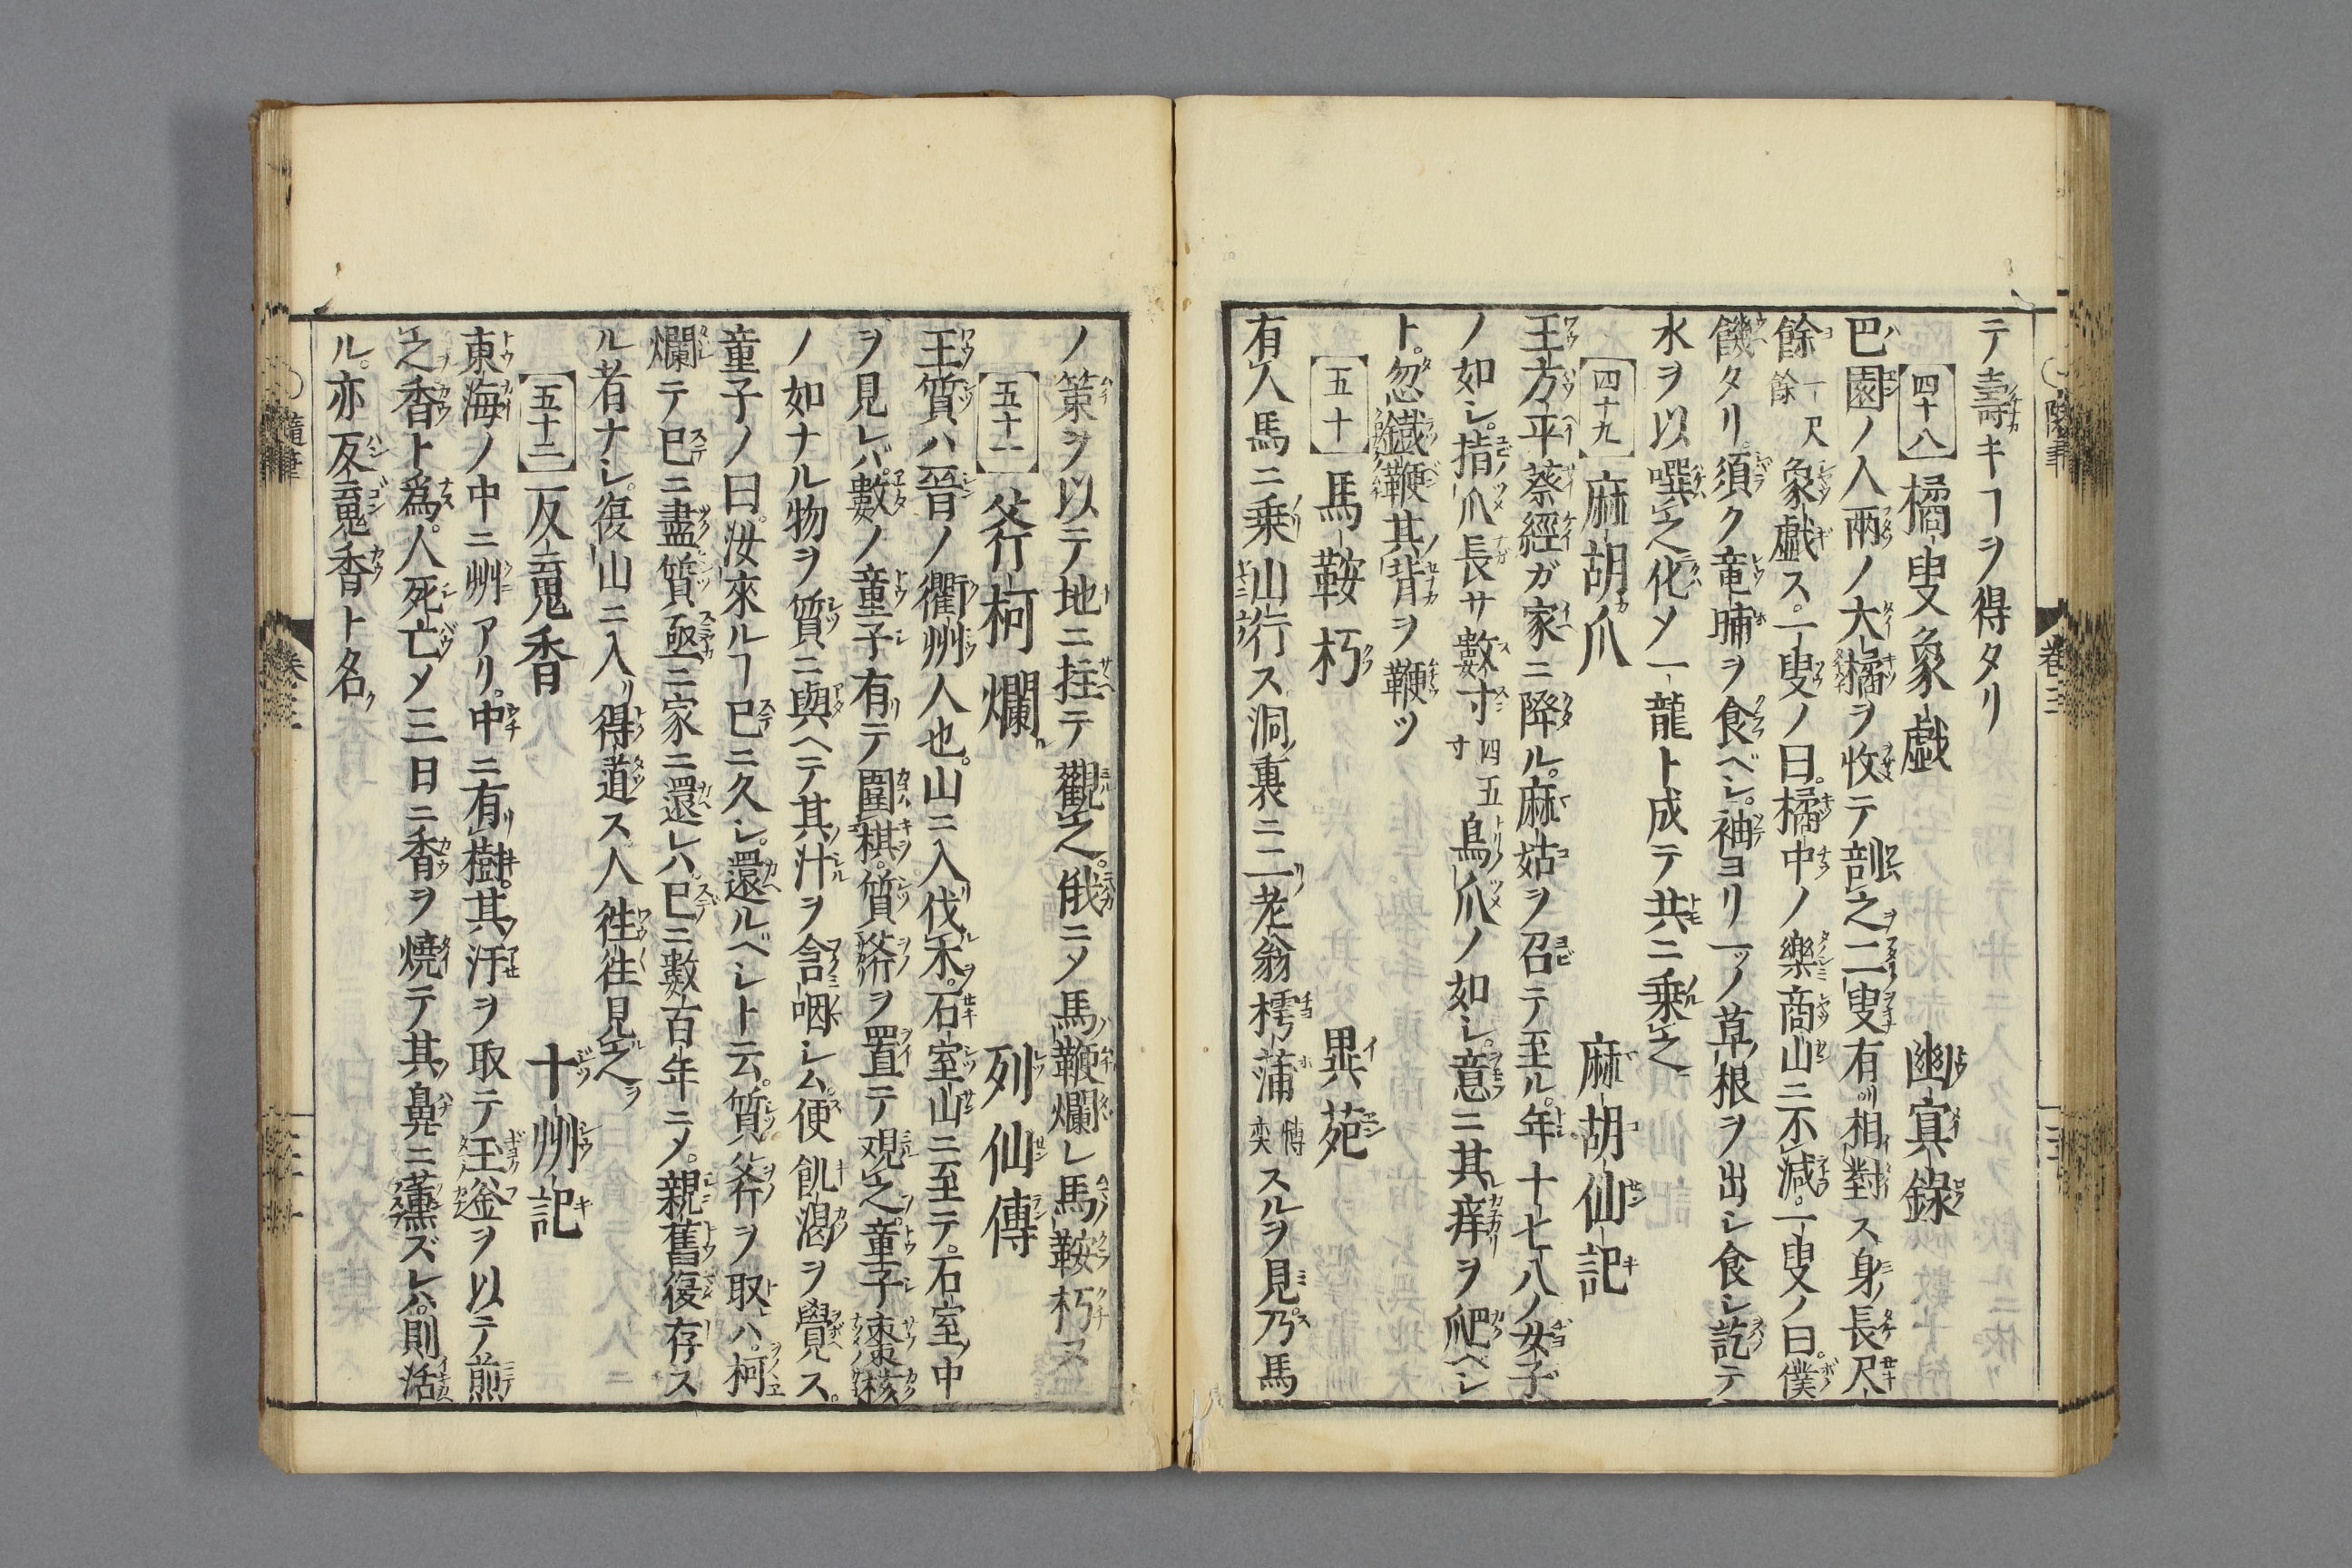 テ壽キヿヲ得タリ
四十八 橘叟象戯 幽冥錄
巴園ノ人兩ノ大橘ヲ收テ剖之二叟有リ相對ス身ノ長尺
餘一尺餘象戯ス。一叟ノ曰。橘中ノ樂商山ニ不減。一叟ノ曰。僕
饑タリ。須ク竜脯ヲ食ベシ。袖ヨリ一ツノ草根ヲ出シ食シ訖テ
水ヲ以噀之化メ一龍ト成テ共ニ乗之
四十九 麻胡爪 麻胡仙記
王方平蔡經ガ家ニ降ル。麻姑ヲ召テ至ル。年十七八ノ女子
ノ如シ。指爪長サ數寸四五寸鳥爪ノ如シ。意ニ其痒ヲ爬ベシ
ト。忽鐵鞭其背ヲ鞭ツ
五十 馬鞍朽 異苑
有人馬ニ乗山行ス洞裏ニ二老翁樗蒲博奕スルヲ見乃馬
ノ策ヲ以テ地ニ拄テ觀之。俄ニメ馬鞭爛レ馬鞍朽ヌ
五十一 斧柯爛 列仙傳
王質ハ晉ノ衢州人也。山ニ入伐木。石室山ニ至テ。石室ノ中
ヲ見レバ。數ノ童子有テ圍棋。質斧ヲ置テ観之。童子棗核
ノ如ナル物ヲ質ニ與ヘテ其汁ヲ含咽シム。便飢渇ヲ覺ス。
童子ノ曰。汝來ルヿ已ニ久シ。還ルベシト云。質斧ヲ取ハ。柯
爛テ已ニ盡質亟ニ家ニ還レハ。已ニ數百年ニメ。親舊復存ス
ル者ナシ。復山ニ入リ得道ス人徃徃見之
五十二 反魂香 十州記
東海ノ中ニ州アリ。中ニ有樹。其汗ヲ取テ玉釜ヲ以テ煎
之香ト為。人死亡メ三日ニ香ヲ燒テ其鼻ニ薰ズレハ。則活
ル。亦反魂香ト名
隨筆 卷三